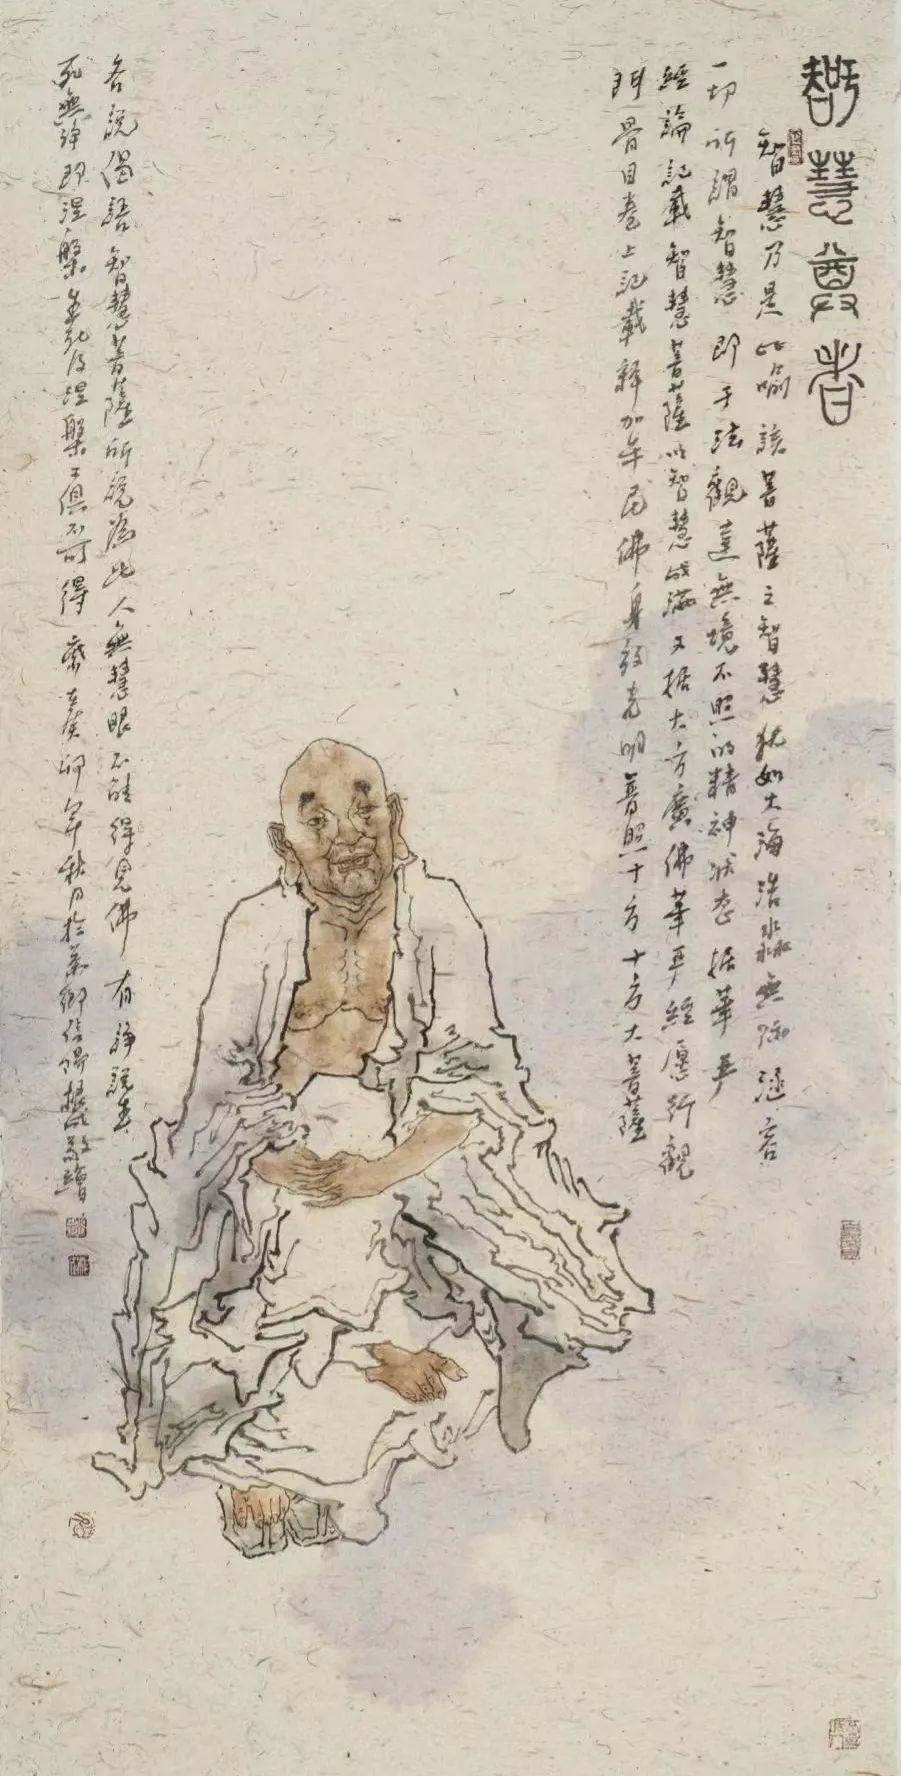 智慧尊者
智慧乃是比喻該菩薩之智慧猶如大海浩淼無際涵容
一切所謂智慧即于法觀達無境不照的精神狀态据華严
經論記載智慧菩薩以智慧成滿又据大方廣佛華严經願行觀
門骨目卷上記載释加牟尼佛身放光明普照十方十方大菩薩
各說偈語智慧菩薩所說為此人無慧眼不能得見佛有諍說生
死無諍即涅槃生死及涅槃二俱不可得 歲在癸卯年秋月於茶鄉信陽 敬繪